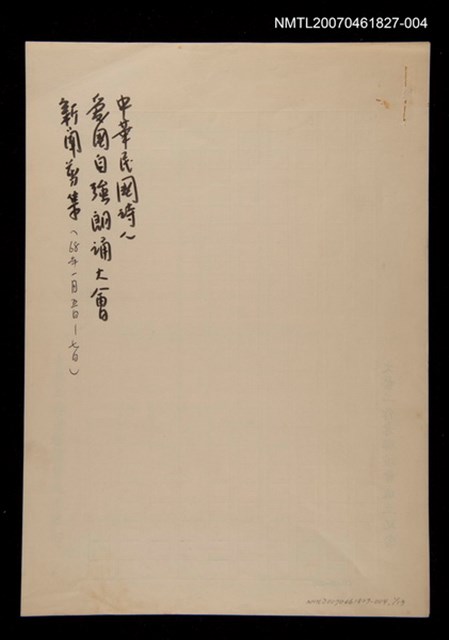 NMTL20070461827-004
中華民國詩人
愛国自強朗誦大會
新聞剪集（68年一月五日－七日）
NMTL20070461827-004, 1/19